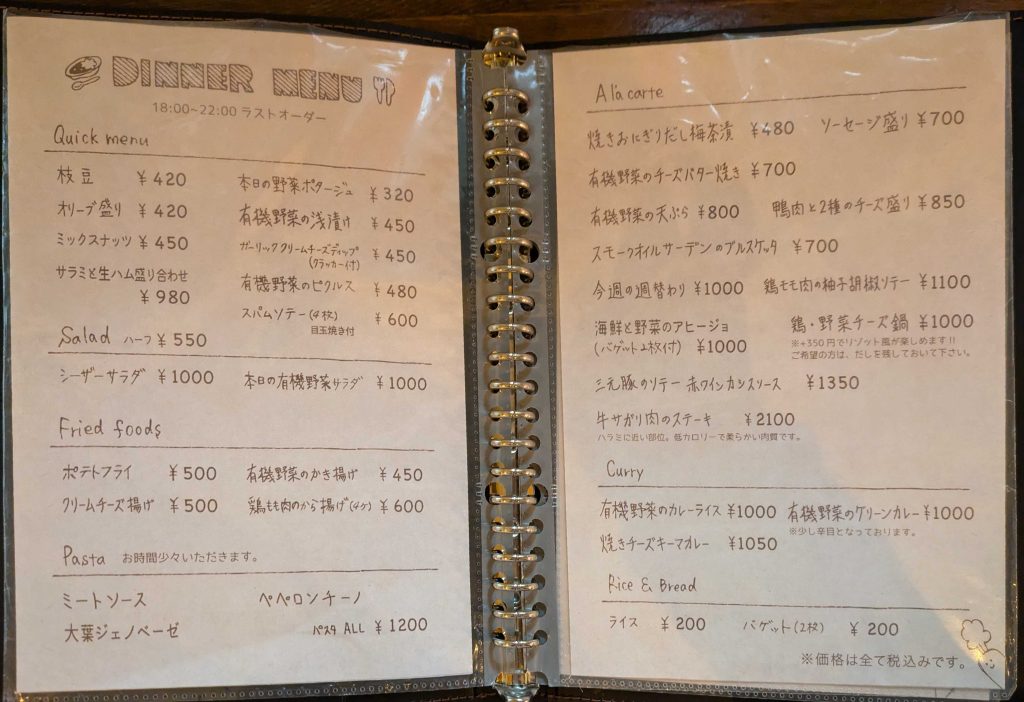 DINNER MENU
18:00~22:00 ラストオーダー
Quick menu
枝豆 ¥420
オリーブ盛り ¥420
ミックスナッツ ¥450
サラミと生ハム盛り合わせ
¥980
本日の野菜ポタージュ ¥320
有機野菜の浅漬け ¥450
ガーリッククリームチーズディップ
(クラッカー付) ¥450
有機野菜のピクルス ¥480
スパムソテー(4枚) ¥600
目玉焼き付
Salad ハーフ ¥550
シーザーサラダ ¥1000 本日の有機野菜サラダ ¥1000
Fried foods
ポテトフライ ¥500 有機野菜のかき揚げ ¥450
クリームチーズ揚げ ¥500 鶏もも肉のから揚げ(4ヶ) ¥600
Pasta お時間少々いただきます。
ミートソース ペペロンチーノ
大葉ジェノベーゼ パスタ ALL ¥1200
A la carte
焼きおにぎりだし梅茶漬 ¥480 ソーセージ盛り ¥700
有機野菜のチーズバター焼き ¥700
有機野菜の天ぷら ¥800 鴨肉と2種のチーズ盛り ¥850
スモークオイルサーデンのブルスケッタ ¥700
今週の週替わり ¥1000 鶏もも肉の柚子胡椒ソテー ¥1100
海鮮と野菜のアヒージョ
(バゲット2枚付) ¥1000
鶏・野菜チーズ鍋 ¥1000
※+350円でリゾット風が楽しめます!!
ご希望の方は、だしを残しておいて下さい。
三元豚のソテー 赤ワインカシスソース ¥1350
牛サガリ肉のステーキ ¥2100
ハラミに近い部位。低カロリーで柔らかい肉質です。
Curry
有機野菜のカレーライス ¥1000 有機野菜のグリーンカレー ¥1000
※少し辛目となっております。
焼きチーズキーマカレー ¥1050
Rice & Bread
ライス ¥200 バゲット(2枚) ¥200
※価格は全て税込みです。